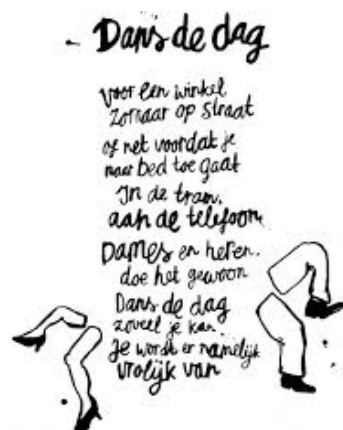 Dans de dag
Voor een winkel
Zomaar op straat
of net voordat je
naar bed toe gaat
In de tram,
aan de telefoon
Dames en heren,
doe het gewoon
Dans de dag
zoveel je kan.
Je wordt er namelijk
vrolijk van